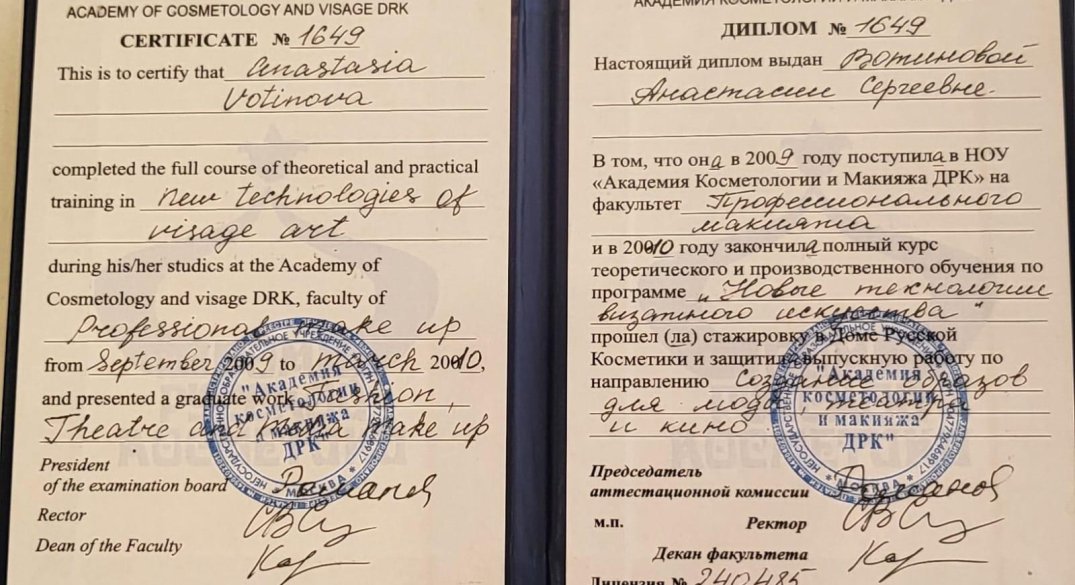 ACADEMY OF COSMETOLOGY AND VISAGE DRK
CERTIFICATE № 1649
This is to certify that Anastasia
Votinova
completed the full course of theoretical and practical
training in New technologies of
visage art
during his/her studics at the Academy of
Cosmetology and visage DRK, faculty of
Professional make up
from September 2009 to march 20010,
and presented a graduate work Fashion,
Theatre and make up
President
of the examination board
Rector
Dean of the Faculty
"Академия
косметологии
и макияжа
ДРК"
МОСКВА
ДИПЛОМ № 1649
Настоящий диплом выдан Вотиновой
Анастасии Сергеевне.
В том, что она в 2009 году поступила в НОУ
«Академия Косметологии и Макияжа ДРК» на
факультет Профессионального
макияжа
и в 20010 году закончила полный курс
теоретического и производственного обучения по
программе "Новые технологии
визажного искусства"
прошел (да) стажировку в Доме Русской
Косметики и защитил выпускную работу по
направлению Создание образов
для моды, театра
и кино
"Академия
косметологии
и макияжа
ДРК"
МОСКВА
Председатель
аттестационной комиссии
м.п. Ректор
Декан факультета
Лицензия № 240485